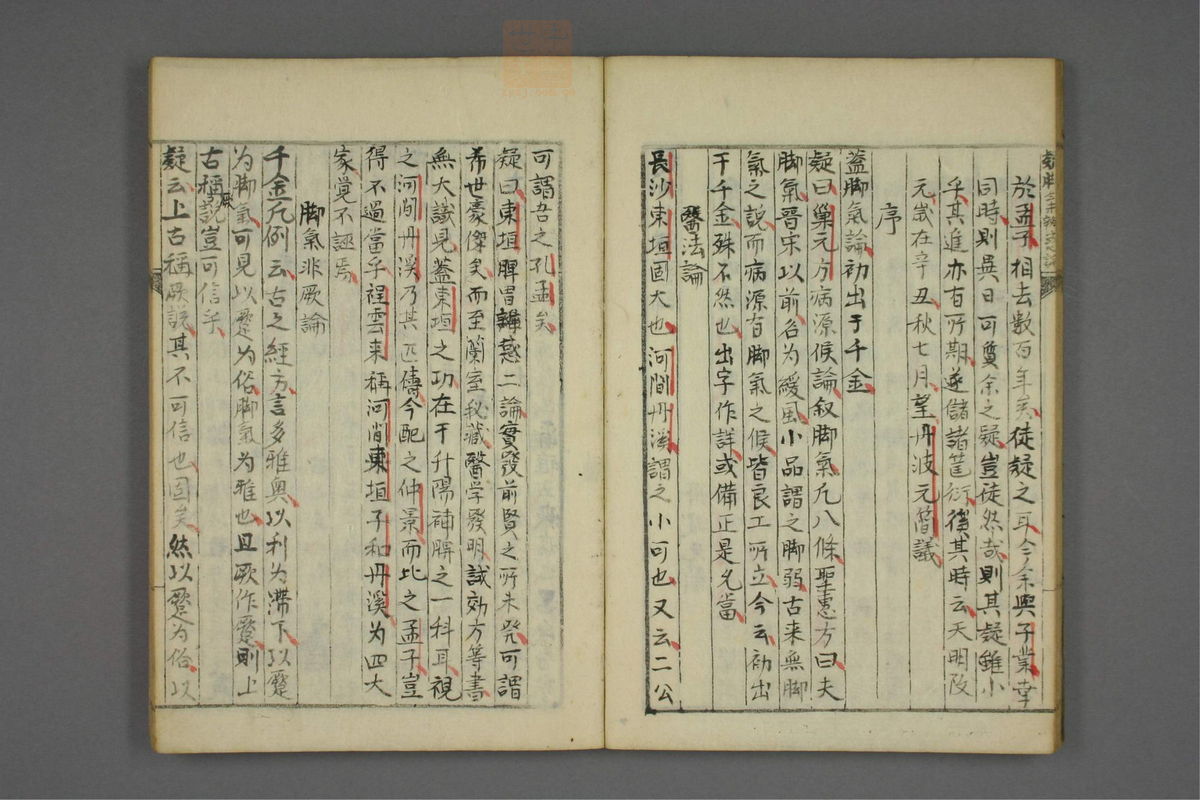 於孟子相去数百年矣徒疑之耳今余與子業幸
同時則異日可質余之疑豈徒然哉則其疑雖小
乎其進亦有所期遂儲諸筐衍待其時云天明改
元歳在辛丑秋七月望丹波元簡議
序
蓋脚氣論初出于千金
疑曰巢元方病源候論叙脚氣凡八條聖惠方曰夫
脚氣晋宋以前名為緩風小品謂之脚弱古来無脚
氣之説而病源有脚氣之候皆良工所立今云初出
于千金殊不然也出字作詳或備正是允當
醫法論
長沙東垣固大也河間丹溪謂之小可也又云二公
可謂吾之孔孟矣
疑曰東垣脾胃辨惑二論實發前賢之所未発可謂
希世豪傑矣而至蘭室秘藏醫学發明試効方等書
無大識見蓋東垣之功在于升陽補脾之一科耳視
之河間丹溪乃其匹儔今配之仲景而比之孟子豈
得不過當乎程雲来稱河肖東垣子和丹溪為四大
家覚不誣焉
脚氣非厥論
千金凡例云古之經方言多雅奥以利為滞下以蹷
為脚氣可見以蹷为俗脚氣为雅也且厥作蹷則上
古稱厥説豈可信乎
疑云上古稱厥説其不可信也固矣然以蹷为俗以